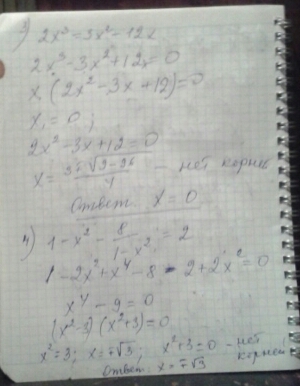 3) 2x³ = 3x² - 12x
2x³ - 3x² + 12x = 0
x (2x² - 3x + 12) = 0
x₁ = 0 ;
2x² - 3x + 12 = 0
x = (3 ∓ √(9-96))/4 - нет корней
Ответ. x = 0
4) 1 - x² - 8/(1 - x²) = 2
1 - 2x² + x⁴ - 8 - 2 + 2x² = 0
x⁴ - 9 = 0
(x² - 3) (x² + 3) = 0
x² = 3; x = ∓√3; x² + 3 = 0 - нет корней
Ответ. x = ∓√3